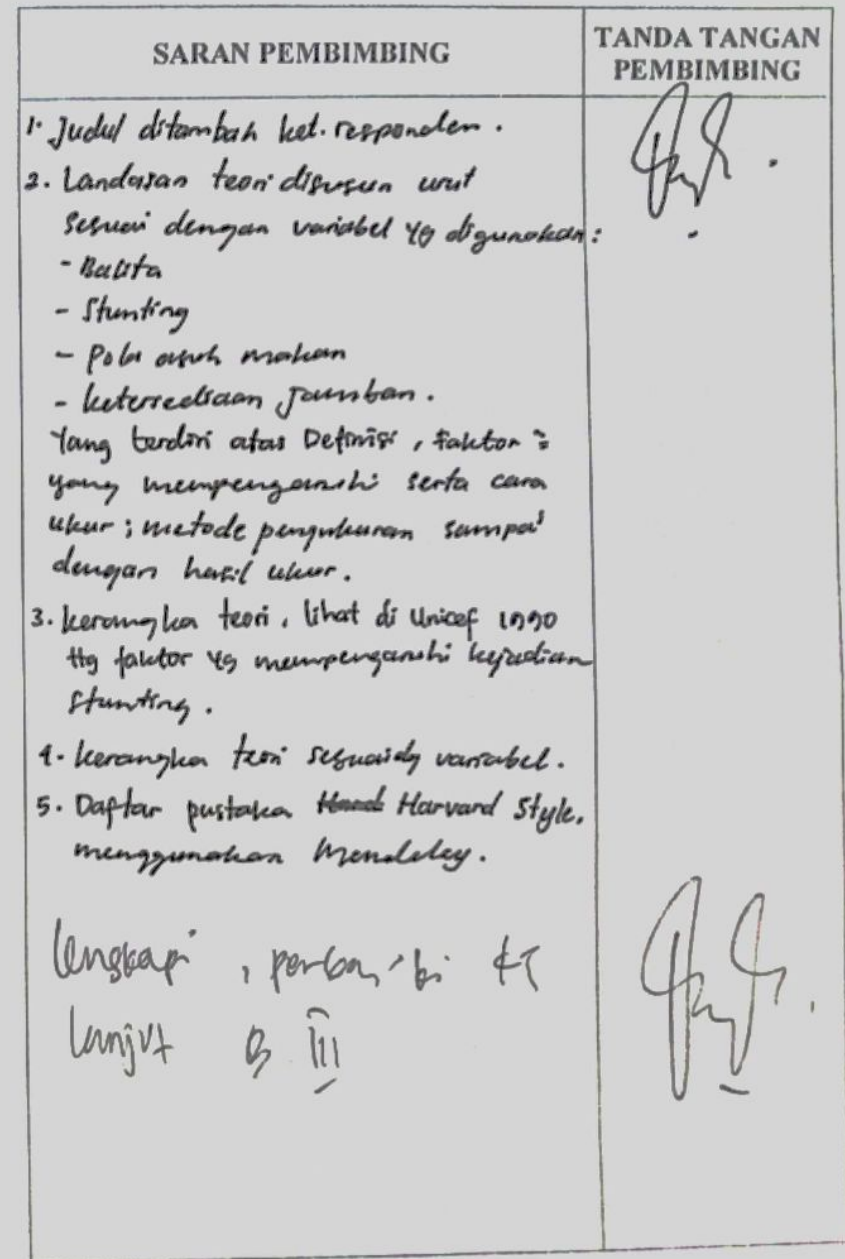 SARAN PEMBIMBING
TANDA TANGAN
PEMBIMBING
1. Judul ditambah ket. responden.
2. Landasan teori disusun urut
sesuai dengan variabel yg digunakan:
- Balita
- Stunting
- Pola asuh makan
- ketersediaan Jamban.
Yang terdiri atas Definisi, faktor²
yang mempengaruhi serta cara
ukur; metode pengukuran sampai
dengan hasil ukur.
3. kerangka teori, lihat di Unicef 1990
ttg faktor yg mempengaruhi kejadian
Stunting.
4. kerangka teori sesuai dg variabel.
5. Daftar pustaka Harvard Style,
menggunakan Mendeley.
lengkapi, perbaiki KT
lanjut B III